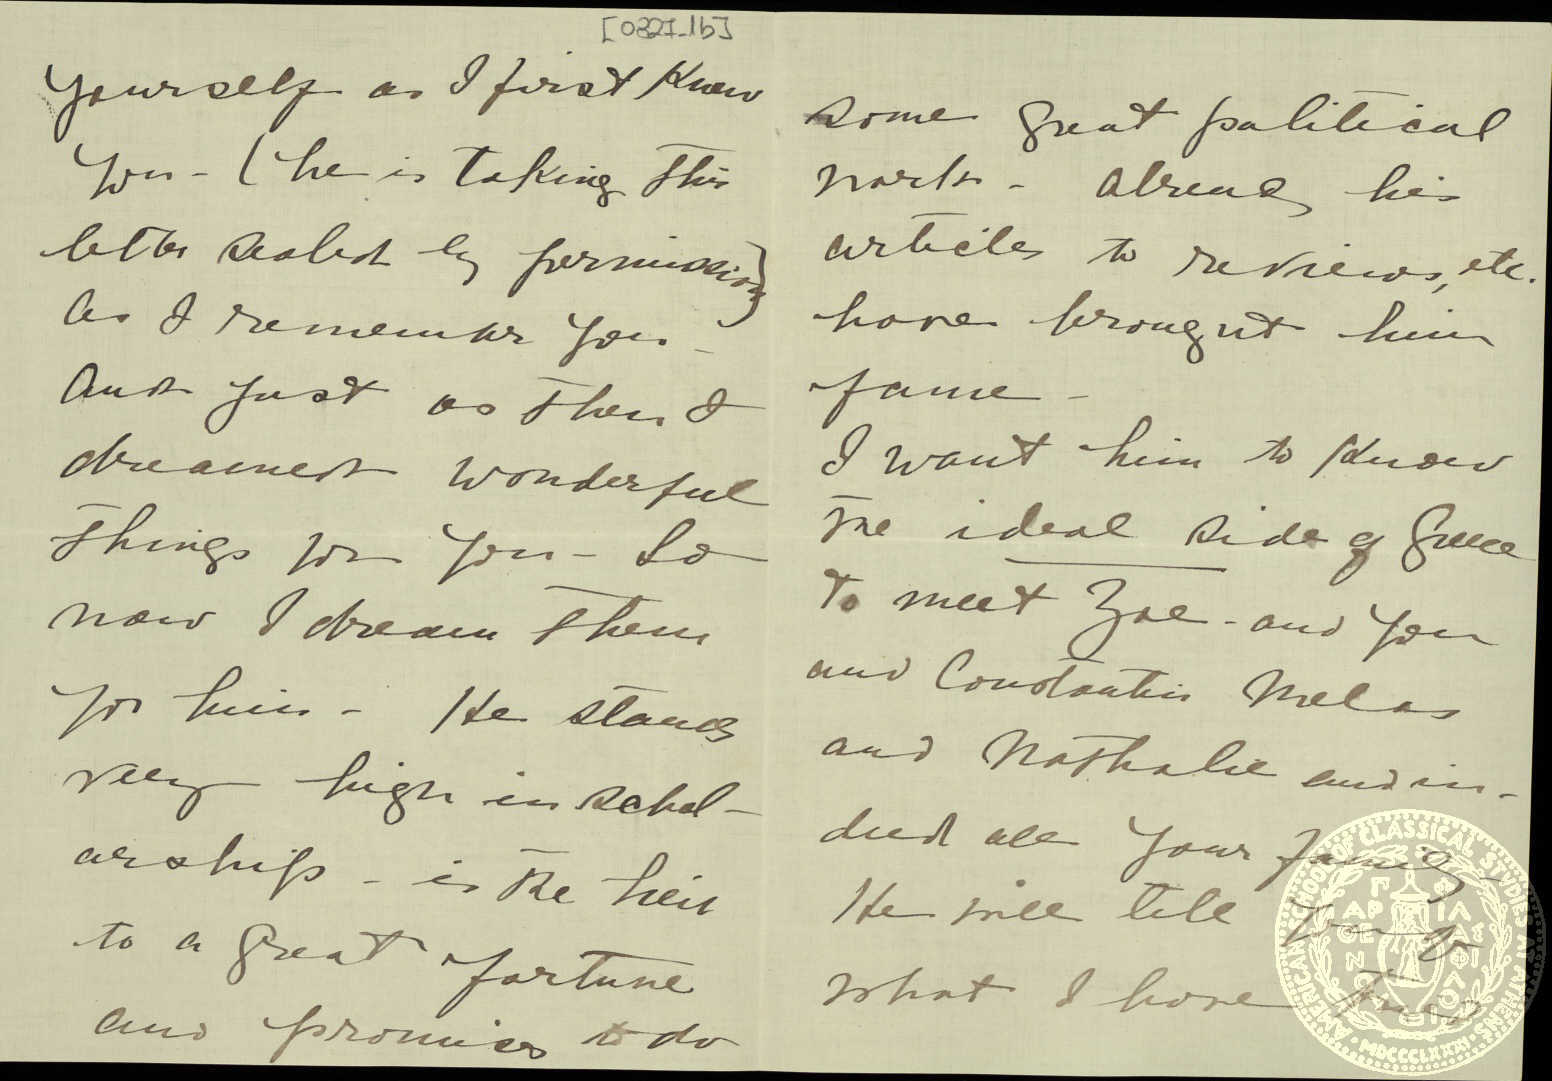 [0827-1b]
yourself as I first knew
you - (he is taking this
letter sealed by permission)
as I remember you -
and just as then I
dreamed wonderful
things for you - So
now I dream them
for him - He stands
very high in schol-
arship - is the heir
to a great fortune
and promises to do
some great political
work - already his
articles to reviews, etc.
have brought him
fame -
I want him to know
the ideal side of Greece
to meet Zoe - and you
and Constantin Melas
and Nathalie and in-
deed all your family
He will tell you of
what I have tried
AMERICAN SCHOOL OF CLASSICAL STUDIES AT ATHENS
MDCCCLXXXI